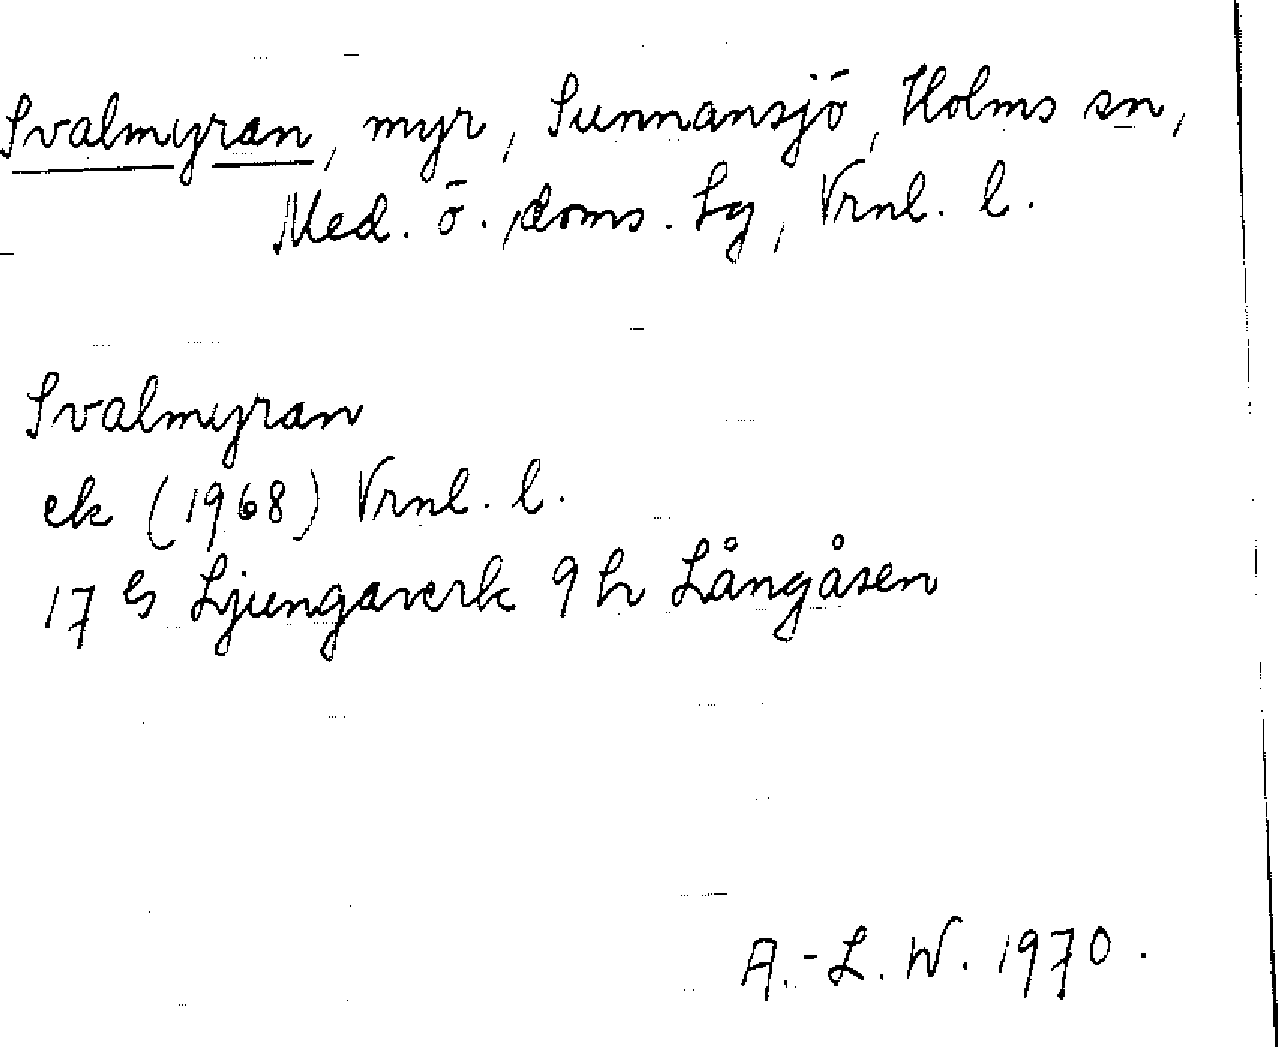 Svalmyran, myr, Sunnansjö, Holms sn,
Med. ö. doms. Lg, Vrnl. l.
Svalmyran
ek (1968) Vrnl. l.
17 G Ljungaverk 9 h Långåsen
A.-L. W. 1970.